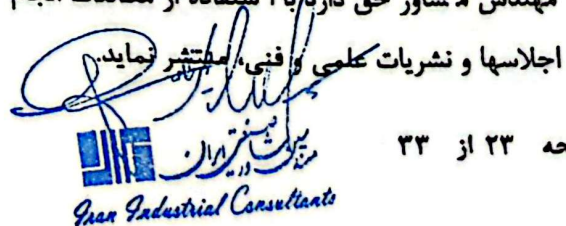 مهندس مشاور حق دارد با استفاده از مطالعات انجام
اجلاسها و نشریات علمی و فنی، منتشر نماید.
حه ۲۳ از ۳۳
مهندسین مشاور صنعتی ایران
Iran Industrial Consultants